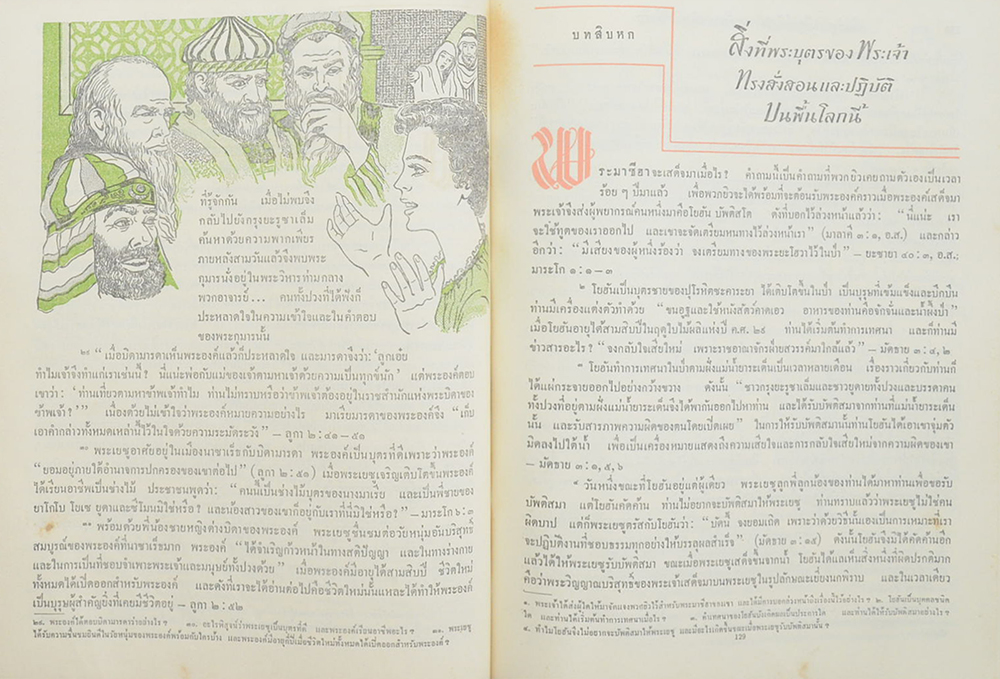 ที่รู้จักกัน เมื่อไม่พบจึง
กลับไปยังกรุงยะรูซาเล็ม
ค้นหาด้วยความพากเพียร
ภายหลังสามวันแล้วจึงพบพระ
กุมารนั่งอยู่ในพระวิหารท่ามกลาง
พวกอาจารย์... คนทั้งปวงที่ได้ฟังก็
ประหลาดใจในความเข้าใจและในคำตอบ
ของพระกุมารนั้น
๒๙ “เมื่อบิดามารดาเห็นพระองค์แล้วก็ประหลาดใจ และมารดาจึงว่า: ‘ลูกเอ๋ย
ทำไมเจ้าจึงทำแก่เราเช่นนี้? ที่แน่ะพ่อกับแม่ของเจ้าตามหาเจ้าด้วยความเป็นทุกข์นัก’ แต่พระองค์ตอบ
เขาว่า: ‘ท่านเที่ยวตามหาข้าพเจ้าทำไม ท่านไม่ทราบหรือว่าข้าพเจ้าต้องอยู่ในราชสำนักแห่งพระบิดาของ
ข้าพเจ้า?’” เนื่องด้วยไม่เข้าใจว่าพระองค์หมายความอย่างไร มาเรียมารดาของพระองค์จึง “เก็บ
เอาคำกล่าวทั้งหมดเหล่านี้ไว้ในใจด้วยความระมัดระวัง” – ลูกา ๒:๔๑–๕๑
๓๐ พระเยซูอาศัยอยู่ในเมืองนาซาเร็ธกับบิดามารดา พระองค์เป็นบุตรที่ดีเพราะว่าพระองค์
“ยอมอยู่ภายใต้อำนาจการปกครองของเขาต่อไป” (ลูกา ๒:๕๑) เมื่อพระเยซูเจริญเติบโตขึ้นพระองค์
ได้เรียนอาชีพเป็นช่างไม้ ประชาชนพูดว่า: “คนนี้เป็นช่างไม้บุตรของนางมาเรีย และเป็นพี่ชายของ
ยาโกโบ โยเซ ยูดาและซีโมนมิใช่หรือ? และน้องสาวของเขาก็อยู่กับเราที่นี่มิใช่หรือ?” – มาระโก ๖:๓
๓๑ พร้อมด้วยพี่น้องชายหญิงต่างบิดาของพระองค์ พระเยซูชื่นชมต่อวัยหนุ่มอันบริสุทธิ์
สมบูรณ์ของพระองค์ที่นาซาเร็ธมาก พระองค์ “ได้จำเริญก้าวหน้าในทางสติปัญญา และในทางร่างกาย
และในการเป็นที่ชอบจำเพาะพระเจ้าและมนุษย์ทั้งปวงด้วย” เมื่อพระองค์มีอายุได้สามสิบปี ชีวิตใหม่
ทั้งหมดได้เปิดออกสำหรับพระองค์ และดังที่เราจะได้อ่านต่อไปคือชีวิตใหม่นั้นแหละได้ทำให้พระองค์
เป็นบุรุษผู้สำคัญยิ่งที่เคยมีชีวิตอยู่ – ลูกา ๒:๕๒
๒๙. พระองค์ได้ตอบบิดามารดาว่าอย่างไร? ๓๐. อะไรพิสูจน์ว่าพระเยซูเป็นบุตรที่ดี และพระองค์เรียนอาชีพอะไร? ๓๑. พระเยซู
ได้รับความชื่นชมยินดีในวัยหนุ่มของพระองค์พร้อมกับใครบ้าง และพระองค์มีอายุกี่ปีเมื่อชีวิตใหม่ทั้งหมดได้เปิดออกสำหรับพระองค์?
บทสิบหก
สิ่งที่พระบุตรของพระเจ้า
ทรงสั่งสอนและปฏิบัติ
บนพื้นโลกนี้
พระมาซีฮาจะเสด็จมาเมื่อไร? คำถามนี้เป็นคำถามที่พวกยิวเคยถามตัวเองเป็นเวลา
ร้อย ๆ ปีมาแล้ว เพื่อพวกยิวจะได้พร้อมที่จะต้อนรับพระองค์คราวเมื่อพระองค์เสด็จมา
พระเจ้าจึงส่งผู้พยากรณ์คนหนึ่งมาคือโยฮัน บัพติสโต ดังที่บอกไว้ล่วงหน้าแล้วว่า: “นี่แน่ะ เรา
จะใช้ทูตของเราออกไป และเขาจะจัดเตรียมหนทางไว้ล่วงหน้าเรา” (มาลาคี ๓:๑, อ.ส.) และกล่าว
อีกว่า: “มีเสียงของผู้หนึ่งร้องว่า จงเตรียมทางของพระยะโฮวาไว้ในป่า” – ยะซายา ๔๐:๓, อ.ส.;
มาระโก ๑:๑–๓
๒ โยฮันเป็นบุตรชายของปุโรหิตซะคาระยา ได้เติบโตขึ้นในป่า เป็นบุรุษที่เข้มแข็งและบึกบึน
ท่านมีเครื่องแต่งตัวทำด้วย “ขนอูฐและใช้หนังสัตว์คาดเอว อาหารของท่านคือจักจั่นและน้ำผึ้งป่า”
เมื่อโยฮันอายุได้สามสิบปีในฤดูใบไม้ผลิแห่งปี ค.ศ. ๒๙ ท่านได้เริ่มต้นทำการเทศนา และก็ท่านมี
ข่าวสารอะไร? “จงกลับใจเสียใหม่ เพราะราชอาณาจักรฝ่ายสวรรค์มาใกล้แล้ว” – มัดธาย ๓:๔, ๒
๓ โยฮันทำการเทศนาในป่าตามฝั่งแม่น้ำยาระเด็นเป็นเวลาหลายเดือน เรื่องราวเกี่ยวกับท่านก็
ได้แผ่กระจายออกไปอย่างกว้างขวาง ดังนั้น “ชาวกรุงยะรูซาเล็มและชาวยูดายทั้งปวงและบรรดาคน
ทั้งปวงที่อยู่ตามฝั่งแม่น้ำยาระเด็นจึงได้พากันออกไปหาท่าน และได้รับบัพติสมาจากท่านที่แม่น้ำยาระเด็น
นั้น และรับสารภาพความผิดของตนโดยเปิดเผย” ในการให้รับบัพติสมานั้นท่านโยฮันได้เอาเขาจุ่มตัว
มิดลงไปใต้น้ำ เพื่อเป็นเครื่องหมายแสดงถึงความเสียใจและการกลับใจเสียใหม่จากความผิดของเขา
– มัดธาย ๓:๑, ๕, ๖
๔ วันหนึ่งขณะที่โยฮันอยู่แต่ผู้เดียว พระเยซูลูกพี่ลูกน้องของท่านได้มาหาท่านเพื่อขอรับ
บัพติสมา แต่โยฮันคัดค้าน ท่านไม่อยากจะบัพติสมาให้พระเยซู ท่านทราบแล้วว่าพระเยซูไม่ใช่คน
ผิดบาป แต่ก็พระเยซูตรัสกับโยฮันว่า: “บัดนี้ จงยอมเถิด เพราะว่าด้วยวิธีนั้นเองเป็นการเหมาะที่เรา
จะปฏิบัติงานที่ชอบธรรมทุกอย่างให้บรรลุผลสำเร็จ” (มัดธาย ๓:๑๕) ดังนั้นโยฮันจึงมิได้คัดค้านอีก
แล้วได้ให้พระเยซูรับบัพติสมา ขณะเมื่อพระเยซูเสด็จขึ้นจากน้ำ โยฮันได้แลเห็นสิ่งหนึ่งที่ผิดปรกติมาก
คือว่าพระวิญญาณบริสุทธิ์ของพระเจ้าเสด็จมาบนพระเยซูในรูปลักษณะเยี่ยงนกพิราบ และในเวลาเดียว
๑. พระเจ้าได้ส่งผู้ใดให้มาจัดแจงพวกยิวไว้สำหรับพระมาซีฮาของเขา และได้มีการบอกล่วงหน้าถึงเรื่องนี้ไว้อย่างไร? ๒. โยฮันเป็นบุคคลชนิด
ใด และท่านได้เริ่มต้นทำการเทศนาเมื่อไร? ๓. คำเทศนาของโยฮันบังเกิดผลเป็นประการใด และท่านได้ให้รับบัพติสมาอย่างไร?
๔. ทำไมโยฮันจึงไม่อยากจะบัพติสมาให้พระเยซู และมีอะไรเกิดขึ้นขณะเมื่อพระเยซูรับบัพติสมานั้น?
129